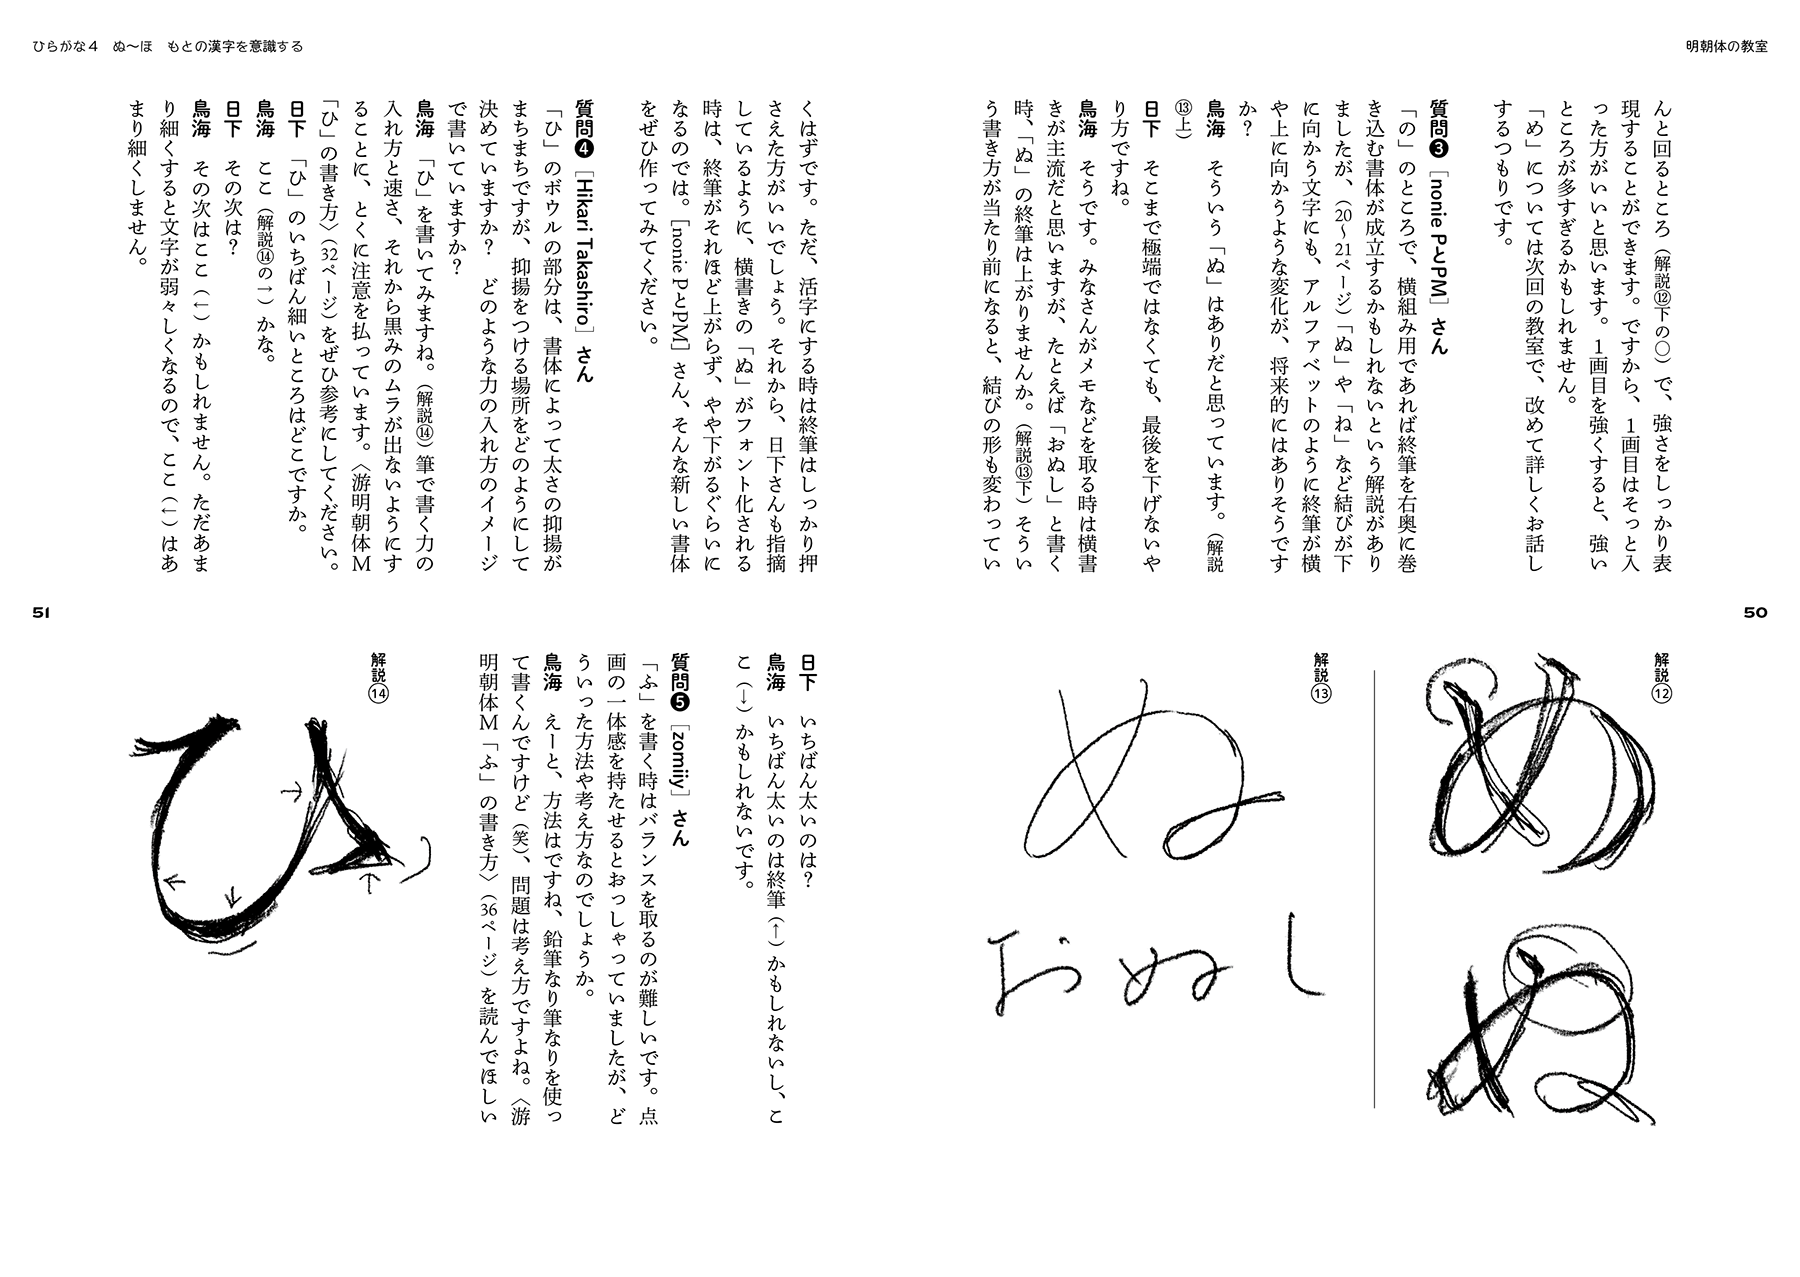 明朝体の教室
んと回るところ（解説⑫下の〇）で、強さをしっかり表
現することができます。ですから、１画目はそっと入
った方がいいと思います。１画目を強くすると、強い
ところが多すぎるかもしれません。
「め」については次回の教室で、改めて詳しくお話し
するつもりです。
質問❸［nonie PとPM］さん
「の」のところで、横組み用であれば終筆を右奥に巻
き込む書体が成立するかもしれないという解説があり
ましたが、（20〜21ページ）「ぬ」や「ね」など結びが下
に向かう文字にも、アルファベットのように終筆が横
や上に向かうような変化が、将来的にはありそうです
か？
鳥海　そういう「ぬ」はありだと思っています。（解説
⑬上）
日下　そこまで極端ではなくても、最後を下げないや
り方ですね。
鳥海　そうです。みなさんがメモなどを取る時は横書
きが主流だと思いますが、たとえば「おぬし」と書く
時、「ぬ」の終筆は上がりませんか。（解説⑬下）そうい
う書き方が当たり前になると、結びの形も変わってい
50
解説⑫
め
ぬ
解説⑬
ぬ
おぬし
ひらがな４　ぬ〜ほ　もとの漢字を意識する
くはずです。ただ、活字にする時は終筆はしっかり押
さえた方がいいでしょう。それから、日下さんも指摘
しているように、横書きの「ぬ」がフォント化される
時は、終筆がそれほど上がらず、やや下がるぐらいに
なるのでは。［nonie PとPM］さん、そんな新しい書体
をぜひ作ってみてください。
質問❹［Hikari Takashiro］さん
「ひ」のボウルの部分は、書体によって太さの抑揚が
まちまちですが、抑揚をつける場所をどのようにして
決めていますか？　どのような力の入れ方のイメージ
で書いていますか？
鳥海　「ひ」を書いてみますね。（解説⑭）筆で書く力の
入れ方と速さ、それから黒みのムラが出ないようにす
ることに、とくに注意を払っています。〈游明朝体Ｍ
「ひ」の書き方〉（32ページ）をぜひ参考にしてください。
日下　「ひ」のいちばん細いところはどこですか。
鳥海　ここ（解説⑭の→）かな。
日下　その次は？
鳥海　その次はここ（←）かもしれません。ただあま
り細くすると文字が弱々しくなるので、ここ（←）はあ
まり細くしません。
51
日下　いちばん太いのは？
鳥海　いちばん太いのは終筆（↑）かもしれないし、こ
こ（↓）かもしれないです。
質問❺［zomiiy］さん
「ふ」を書く時はバランスを取るのが難しいです。点
画の一体感を持たせるとおっしゃっていましたが、ど
ういった方法や考え方なのでしょうか。
鳥海　えーと、方法はですね、鉛筆なり筆なりを使っ
て書くんですけど（笑）、問題は考え方ですよね。〈游
明朝体Ｍ「ふ」の書き方〉（36ページ）を読んでほしい
解説⑭
ひ